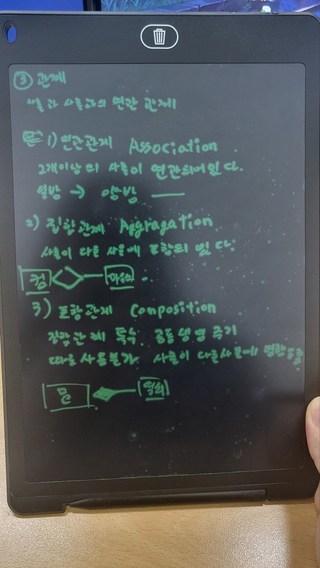 ③ 관계
사물과 사물과의 연관 관계
1) 연관관계 Association
2개이상의 사물이 연관되어있다.
일방 → 양방 —
2) 집합관계 Aggragation
사물이 다른 사물에 포함되 있다.
컴 마우스
3) 포함관계 Composition
집합관계 특수 공동생명 주기
따로 사용불가 사물이 다른사물에 영향
문 열쇠